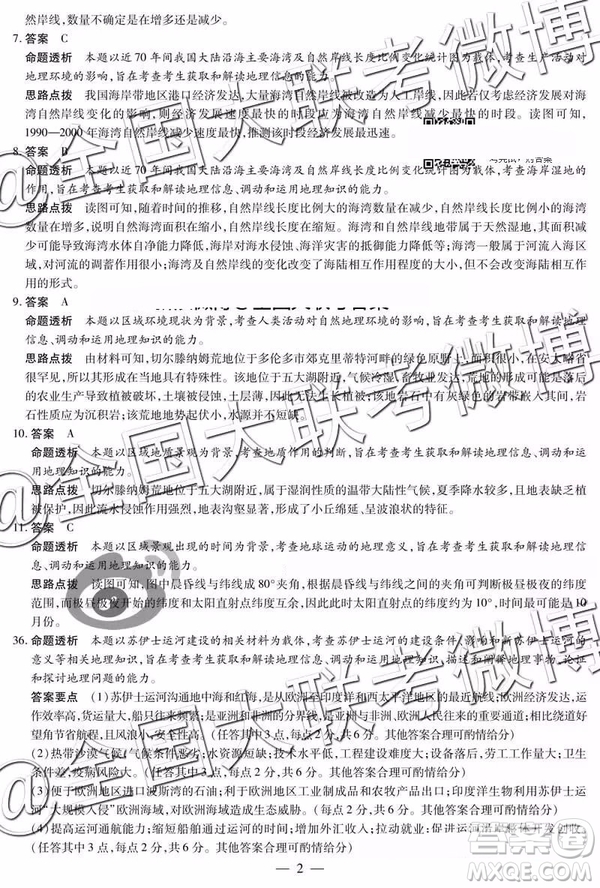 然岸线,数量不确定是在增多还是减少。
7. 答案 C
命题透析 本题以近 70 年间我国大陆沿海主要海湾及自然岸线长度比例变化统计图为载体,考查生产活动对
地理环境的影响,旨在考查考生获取和解读地理信息的能力。
思路点拨 我国海岸带地区港口经济发达,大量海湾自然岸线被改造为人工岸线,因此若仅考虑经济发展对海
湾自然岸线变化的影响,则经济发展速度最快的时段应为海湾自然岸线减少最快的时段。读图可知,
1990—2000 年海湾自然岸线减少速度最快,推测该时段经济发展最迅速。
8. 答案 B
命题透析 本题以近 70 年间我国大陆沿海主要海湾及自然岸线长度比例变化统计图为载体,考查海岸湿地的
作用,旨在考查考生获取和解读地理信息、调动和运用地理知识的能力。
思路点拨 读图可知,随着时间的推移,自然岸线长度比例大的海湾数量在减少,自然岸线长度比例小的海湾数
量在增多,说明自然海湾面积在缩小,自然岸线长度在缩短。海湾及自然岸线属于海岸湿地带,海湾面积缩小,
则会导致海湾水体自净能力降低,海水侵蚀、海洋灾害的抵御能力降低;海湾一般不属于河流入海区
域,对河流的调蓄作用很小;海湾及自然岸线的变化改变了海陆相互作用程度的大小,但不会改变海陆相互作
用的形式。
9. 答案 A
命题透析 本题以区域环境现状为背景,考查人类活动对自然地理环境的影响,旨在考查考生获取和解读地理
信息、调动和运用地理知识的能力。
思路点拨 由材料可知,切尔滕纳姆荒地位于多伦多市郊克里蒂特河畔的绿色原野上,面积不大,在安大略省
很罕见,所以其具有特殊性。该地位于五大湖附近,气候冷湿,畜牧业发达,荒地的形成是由于人们不合
的农业生产导致植被破坏,土壤被侵蚀,土层薄,因此无法生长植被;该地岩石中有灰绿色的岩带嵌入其间,岩
石性质应为沉积岩;该荒地地势起伏小,水源并不短缺。
10. 答案 A
命题透析 本题以区域地质景观为背景,考查地质作用的影响,旨在考查考生获取和解读地理信息、调动和运
用地理知识的能力。
思路点拨 切尔滕纳姆荒地位于五大湖附近,属于湿润性质的温带大陆性气候,夏季降水较多,冬季降雪较大,
因此流水侵蚀作用强烈,形成了小丘绵延、呈波浪状的荒地。
11. 答案 C
命题透析 本题以区域景观出现的时间为背景,考查地球运动的地理意义,旨在考查考生获取和解读地理信息、
调动和运用地理知识的能力。
思路点拨 读图可知,图中晨昏线与纬线成 80°夹角,根据晨昏线与纬线的夹角可判断极昼极夜的纬度
范围,而极昼极夜开始的纬度和太阳直射点的纬度互余,因此太阳直射点的纬度约为 10°,时间可能是 10
月份。
36. 命题透析 本题以苏伊士运河建设的相关材料为载体,考查苏伊士运河的建设条件、影响和苏伊士运河的
意义等相关地理知识,旨在考查考生获取和解读地理信息、调动和运用地理知识、描述和阐释地理事物、论证
和探讨地理问题的能力。
答案要点 (1)苏伊士运河沟通地中海和红海,是从欧洲至印度洋和西太平洋地区的最近航线;欧洲经济发达,运
作效率高,货运量大,船只往来频繁;是亚洲和非洲的分界线,是亚洲与非洲、欧洲人员往来的主要通道;较绕好望
角节省航程,且风浪小,安全度大。(任答其中 3 点,每点 2 分,共 6 分。其他答案合理可酌情给分)
(2)热带沙漠气候,气候条件恶劣;水资源短缺;技术水平低,工程建设难度大;设备落后,劳工工作量大;卫生条
件差,疫病风险大。(任答其中 3 点,每点 2 分,共 6 分。其他答案合理可酌情给分)
(3)便于欧洲地区进口波斯湾的石油;利于欧洲地区工业制成品和农牧产品出口;印度洋生物利用苏伊士运河
“大规模入侵”欧洲海域,对欧洲海域造成生态威胁。(每点 2 分,共 6 分。其他答案合理可酌情给分)
(4)提高运河通航能力;缩短船舶通过运河的时间;增加外汇收入;拉动就业;促进运河沿岸整体开发创收。
(任答其中 3 点,每点 2 分,共 6 分。其他答案合理可酌情给分)
— 2 —
@全国大联考微博
@全国大联考微博
@全国大联考微博
答案圈